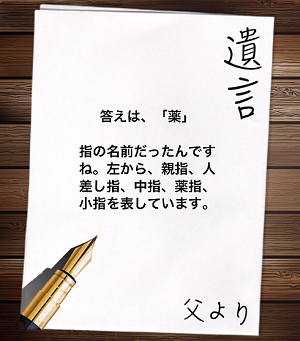 遺言
答えは、「薬」
指の名前だったんです
ね。左から、親指、人
差し指、中指、薬指、
小指を表しています。
父より